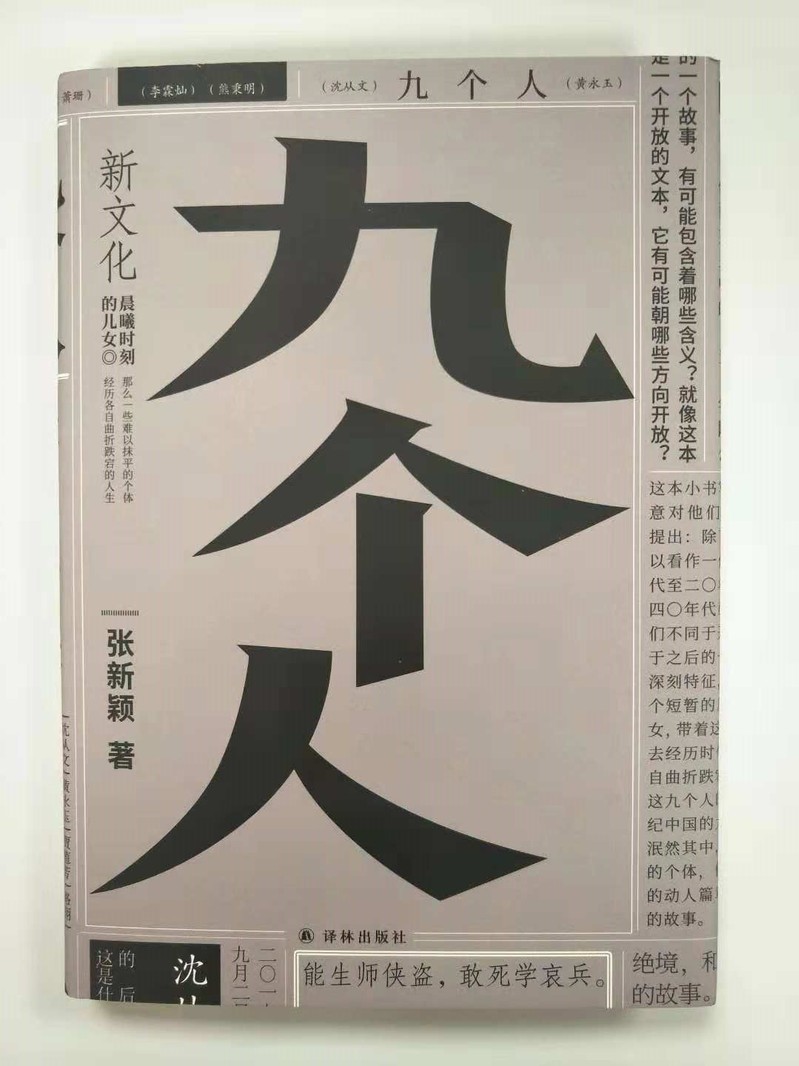 萧珊）
（李霖灿）（熊秉明）
（沈从文）九个人（黄永玉）
九个人
新文化
晨曦时刻
的儿女◎
那么一些难以抹平的个体
经历各自曲折跌宕的人生
张新颖 著
译林出版社
的一个故事，有可能包含着哪些含义？就像这本
是一个开放的文本，它有可能朝哪些方向开放？
这本小书
意对他们
提出：除
以看作一
代至二〇
四〇年代
们不同于
于之后的
深刻特征，
个短暂的
女，带着这
去经历时
自曲折跌宕
这九个人
纪中国的
泯然其中，
的个体，
的动人篇
的故事。
绝境，和
的故事。
能生师侠盗，敢死学哀兵。
二〇一
九月二
沈从
的 后
这是什